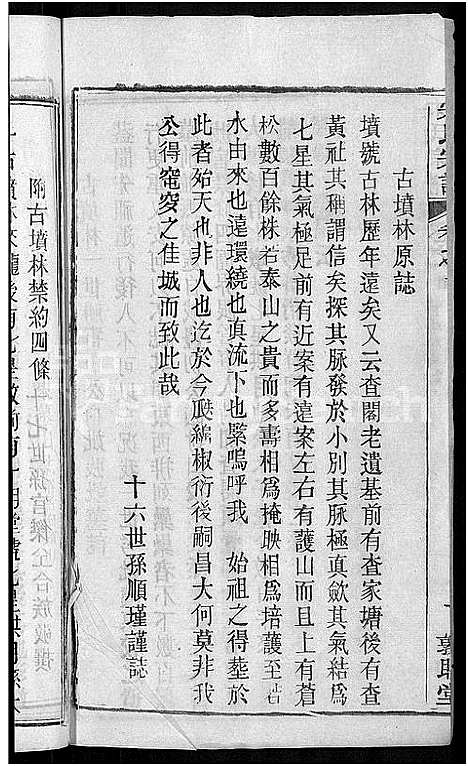 古墳林原誌
墳號古林歷年遠矣又云查閣老遺基前有查家塘後有查
黃社其稱謂信矣探其脉發於小別其脉極眞歟其氣結爲
七星其氣極足前有近案有遠案左右有護山而且上有蒼
松數百餘株若泰山之貴而多壽相爲掩映相爲培護至若
水由來也遠環繞也眞流下也緊嗚呼我 始祖之得塟於
此者殆天也非人也迄於今瓞綿椒衍後嗣昌大何莫非我
公得窀穸之佳城而致此哉
十六世孫順瑾謹誌
附古墳林禁約四條十七世孫官傑仝合族敬撰